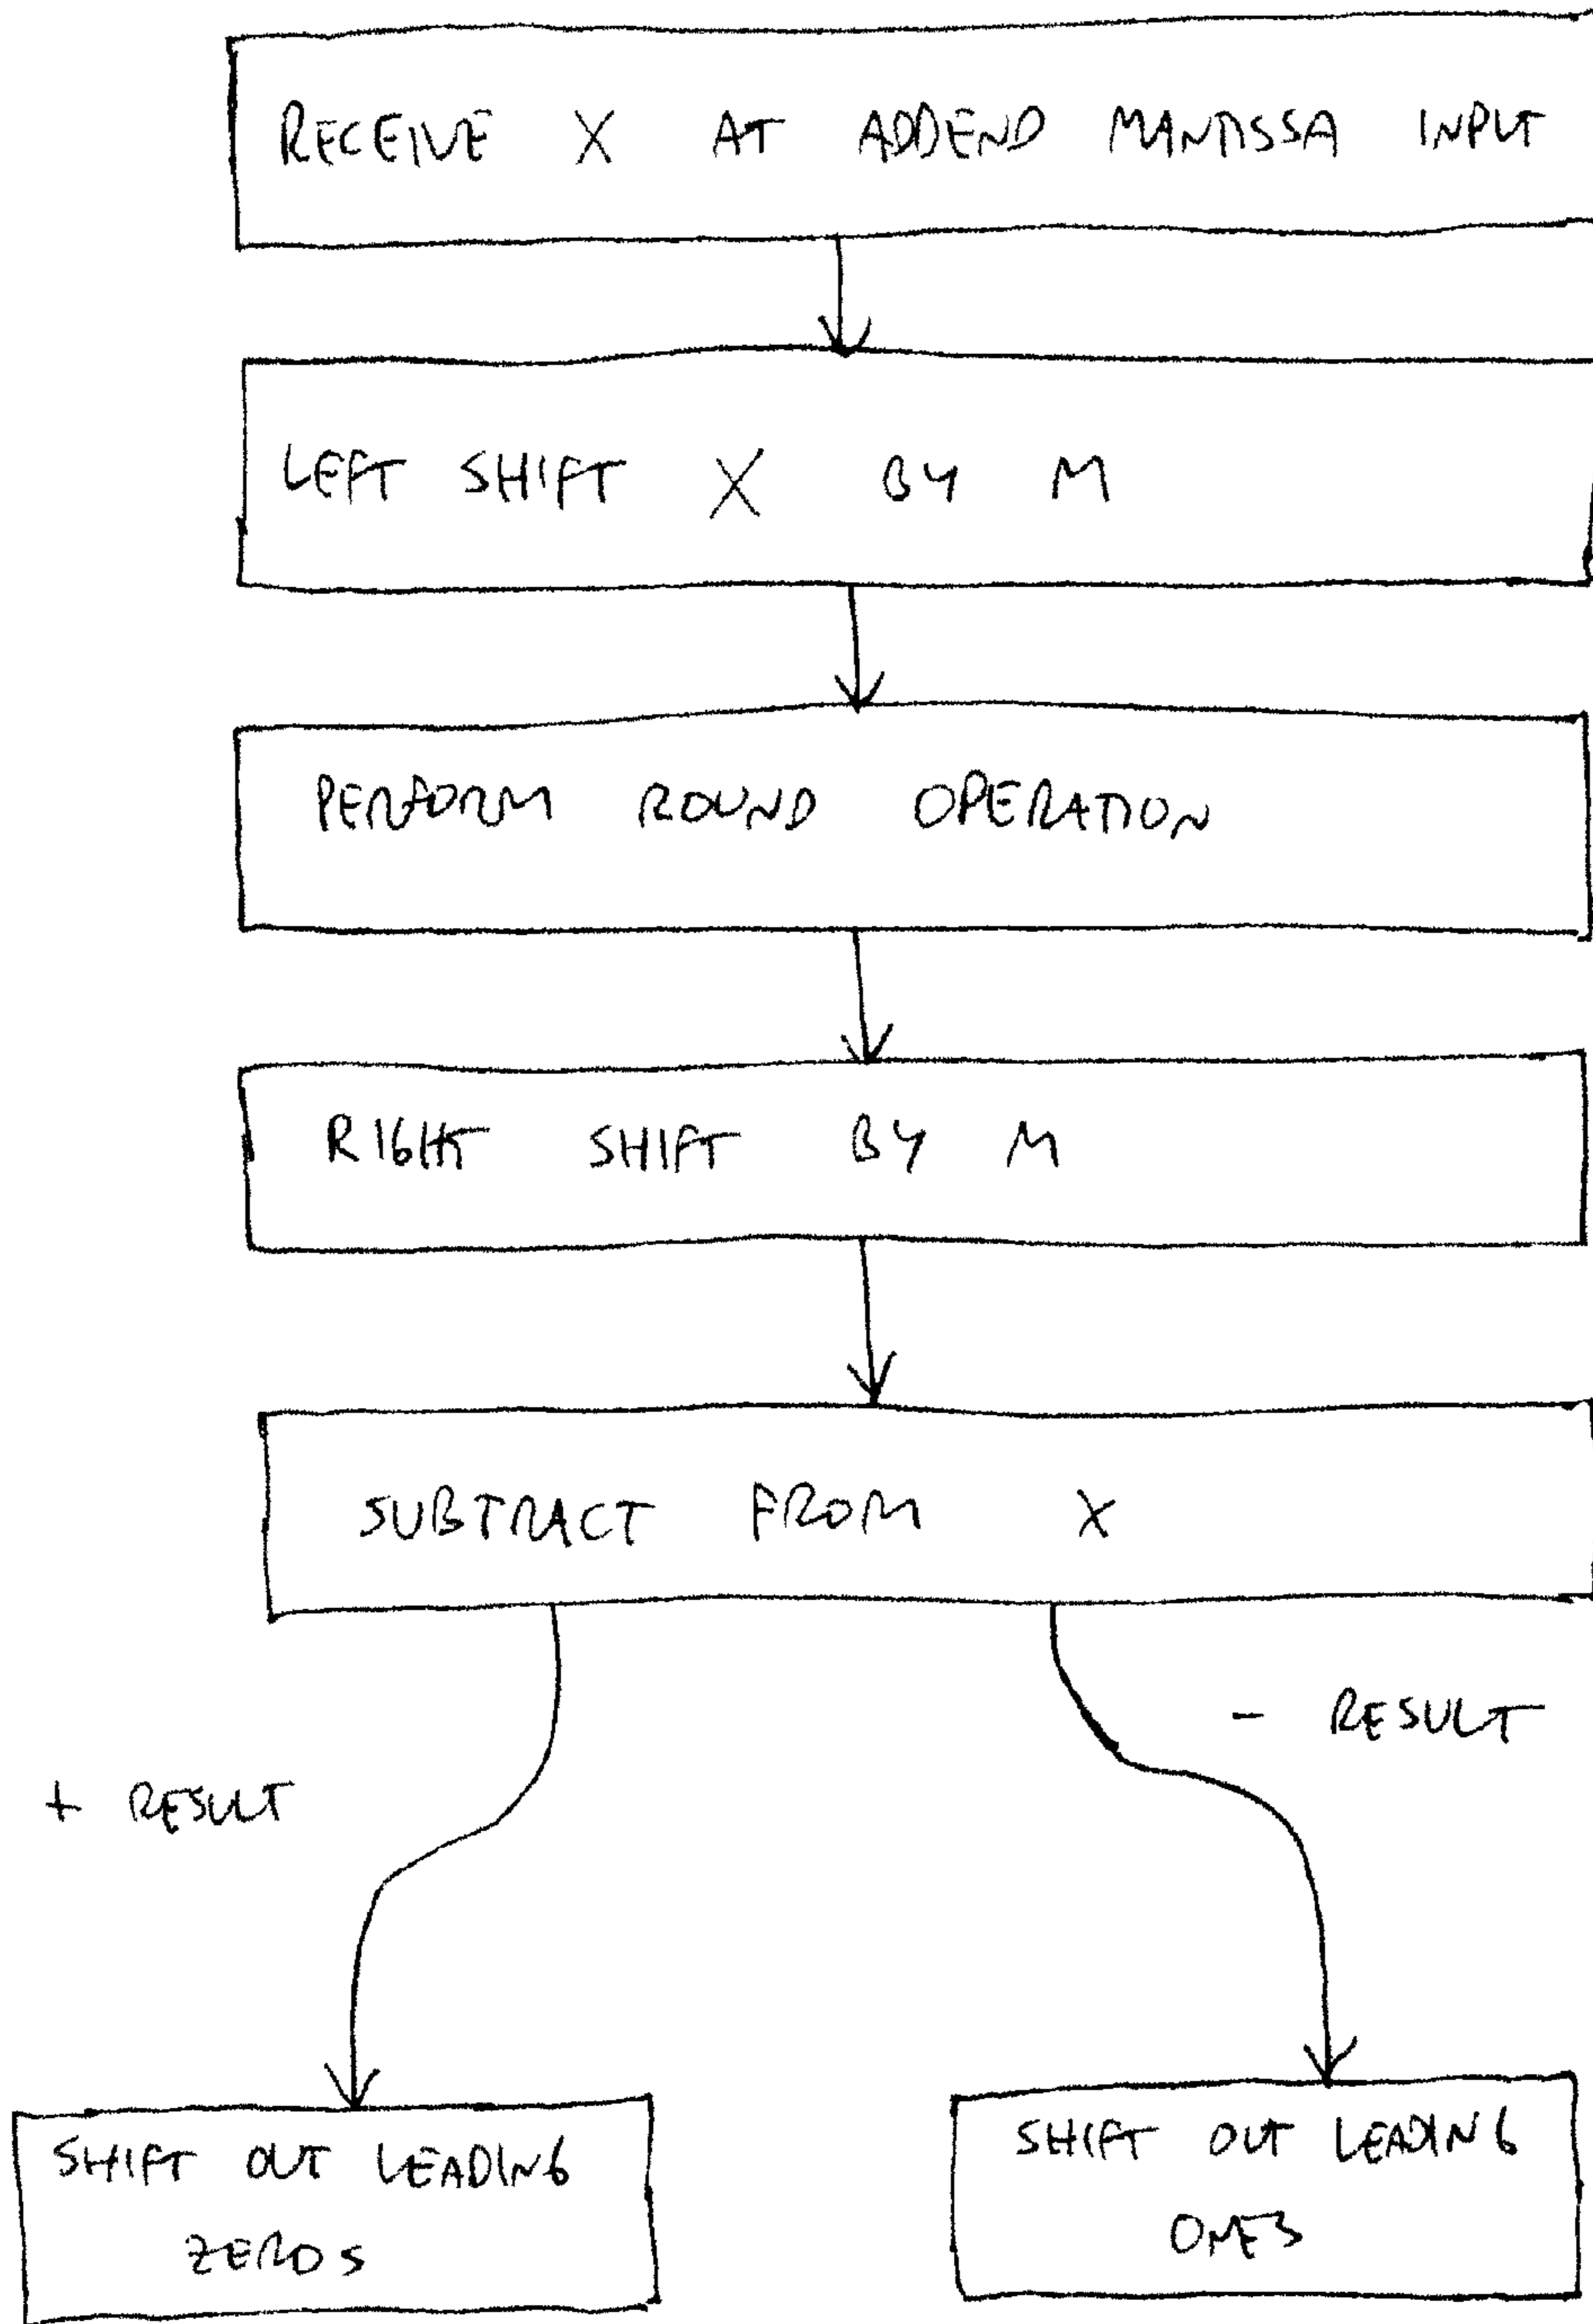 RECEIVE X AT ADDEND MANTISSA INPUT
LEFT SHIFT X BY M
PERFORM ROUND OPERATION
RIGHT SHIFT BY M
SUBTRACT FROM X
- RESULT
+ RESULT
SHIFT OUT LEADING
ZEROS
SHIFT OUT LEADING
ONES